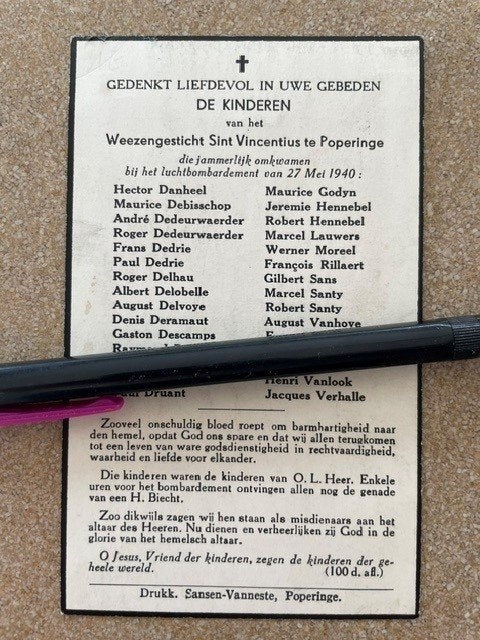 GEDENKT LIEFDEVOL IN UWE GEBEDEN
DE KINDEREN
van het
Weezengesticht Sint Vincentius te Poperinge
die jammerlijk omkwamen
bij het luchtbombardement van 27 Mei 1940 :
Hector Danheel
Maurice Debisschop
André Dedeurwaerder
Roger Dedeurwaerder
Frans Dedrie
Paul Dedrie
Roger Delhau
Albert Delobelle
August Delvoye
Denis Deramaut
Gaston Descamps
Raymond
Paul Druant
Maurice Godyn
Jeremie Hennebel
Robert Hennebel
Marcel Lauwers
Werner Moreel
François Rillaert
Gilbert Sans
Marcel Santy
Robert Santy
August Vanhove
Henri Vanlook
Jacques Verhalle
Zooveel onschuldig bloed roept om barmhartigheid naar
den hemel, opdat God ons spare en dat wij allen terugkomen
tot een leven van ware godsdienstigheid in rechtvaardigheid,
waarheid en liefde voor elkander.
Die kinderen waren de kinderen van O. L. Heer. Enkele
uren voor het bombardement ontvingen allen nog de genade
van een H. Biecht.
Zoo dikwijls zagen wij hen staan als misdienaars aan het
altaar des Heeren. Nu dienen en verheerlijken zij God in de
glorie van het hemelsch altaar.
O Jesus, Vriend der kinderen, zegen de kinderen der ge-
heele wereld. (100 d. afl.)
Drukk. Sansen-Vanneste, Poperinge.